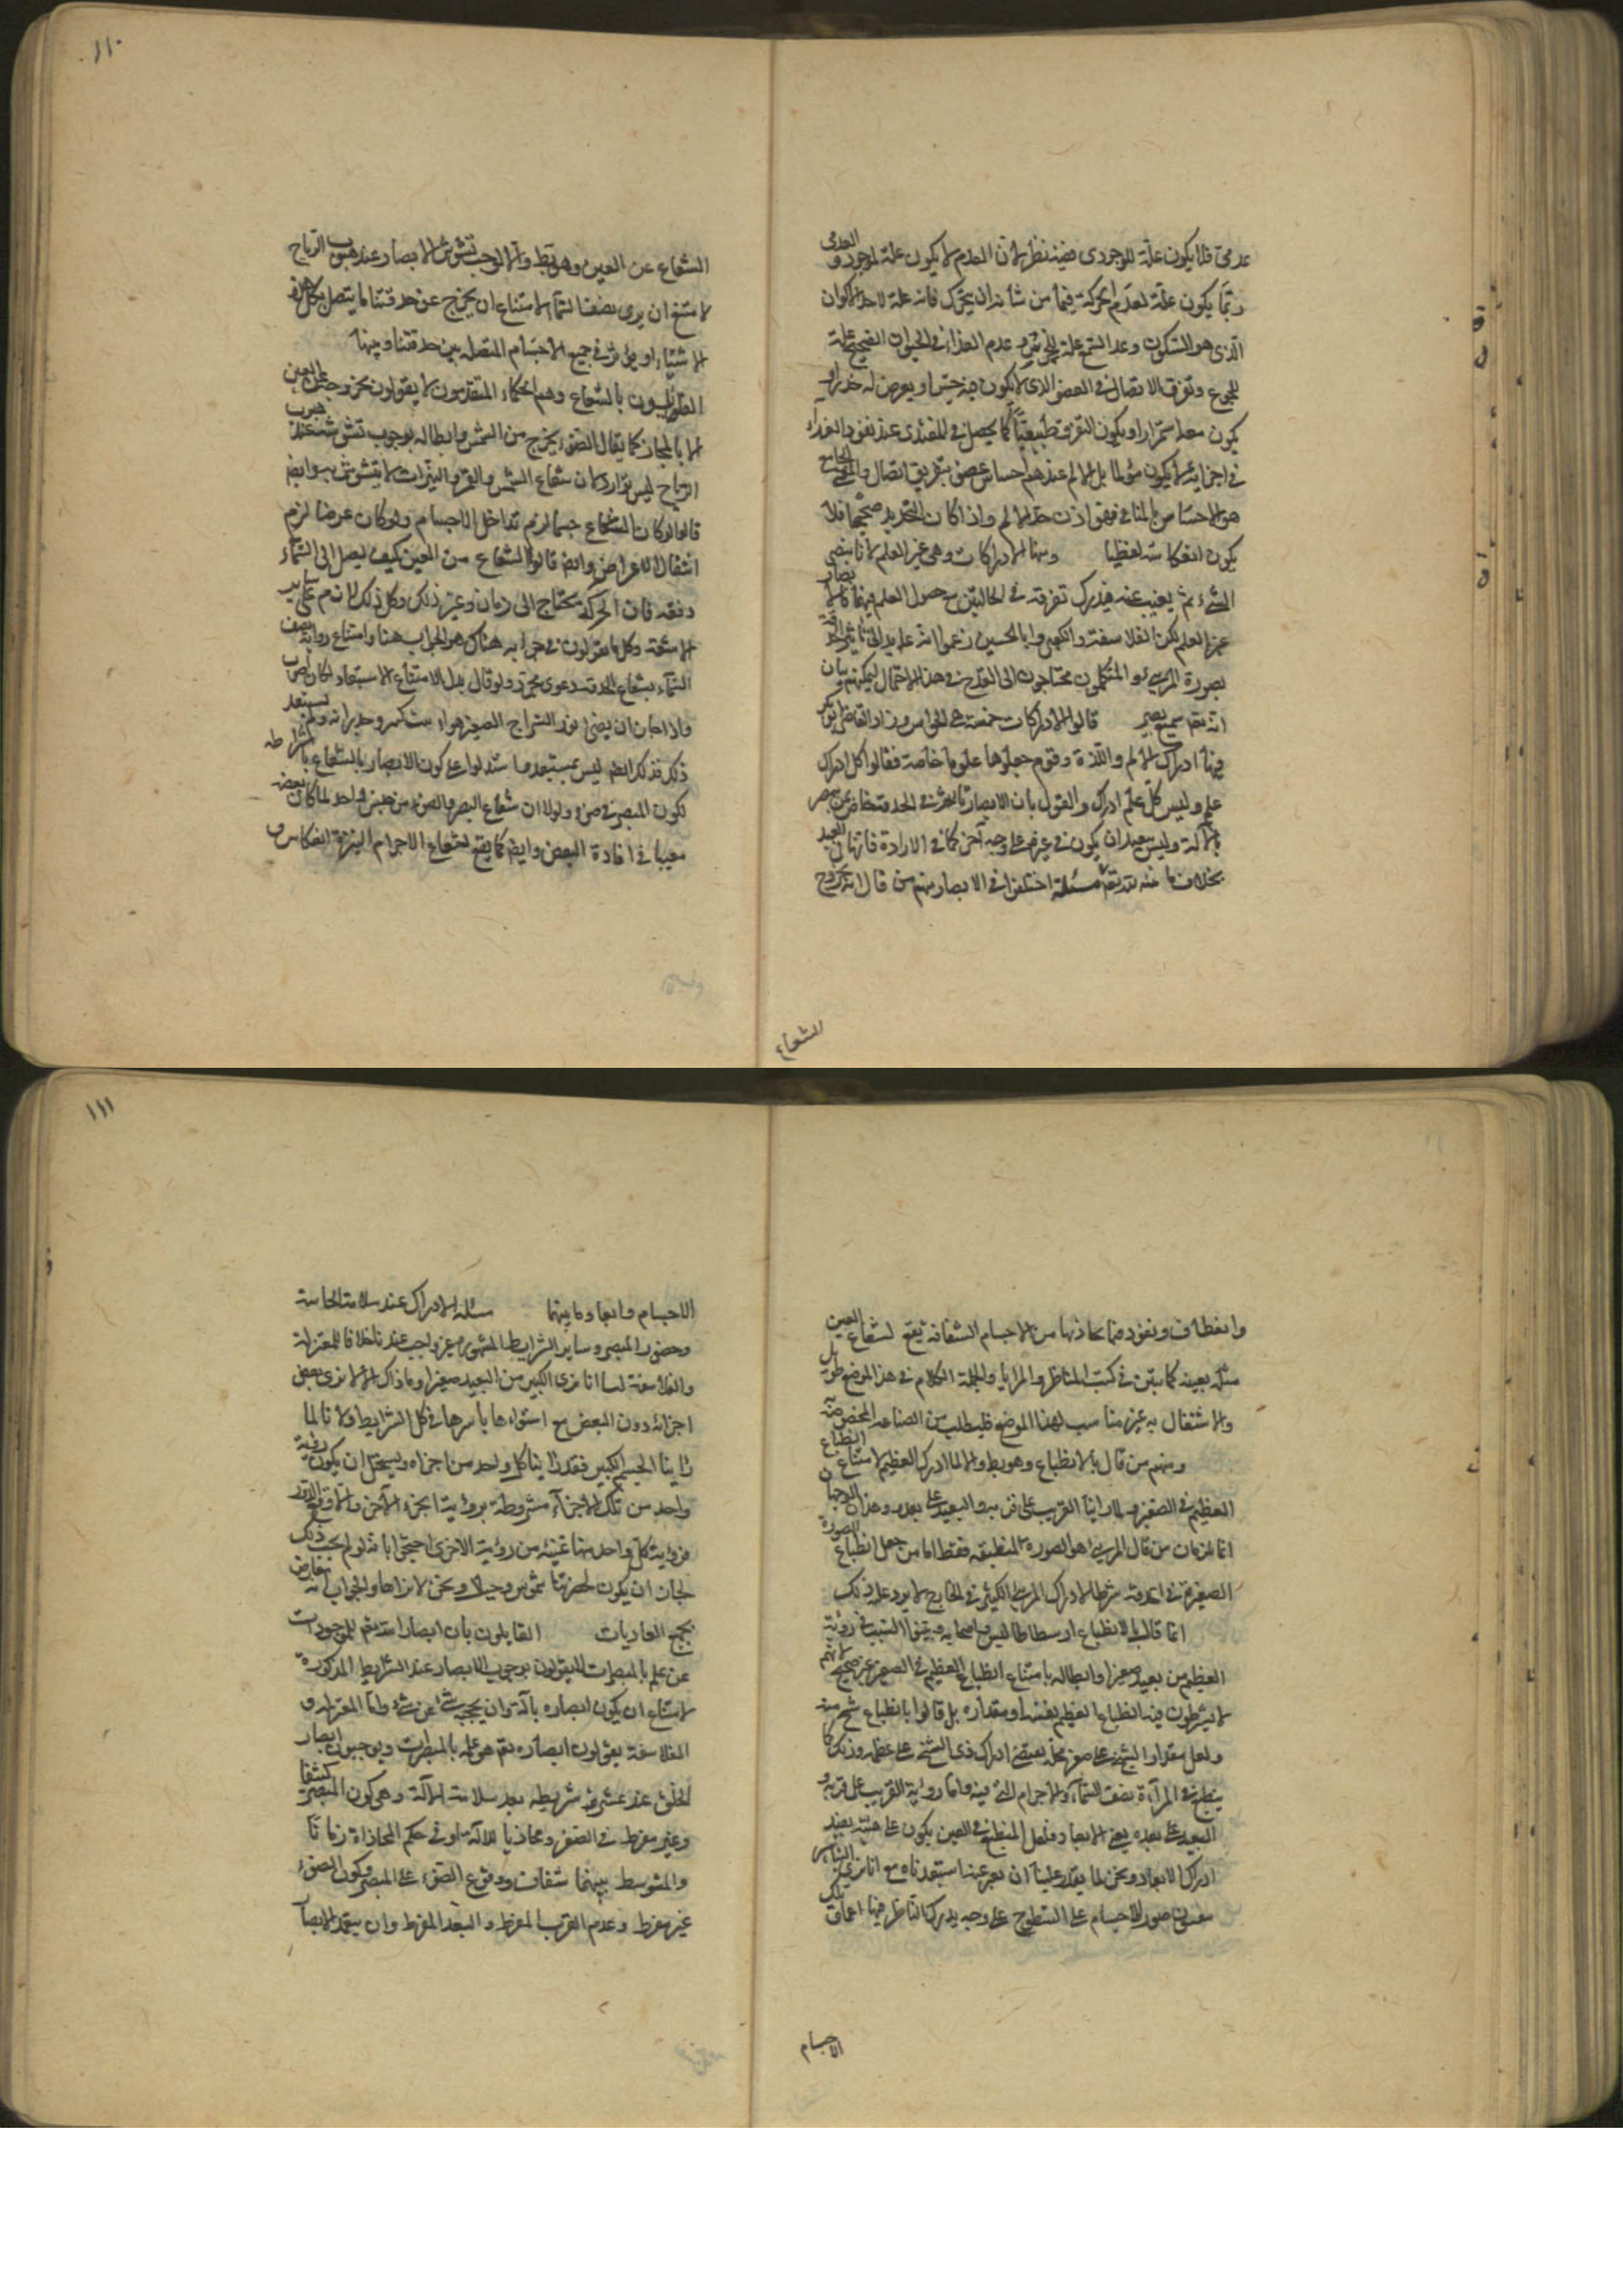 عدمى فلا يكون علة للوجودى ففيه نظر لان العدم لا يكون علة لموجود و العدمى
ربما يكون علة لعدم الحركة فيما من شانه ان يتحرك فانه علة لاحد الاكوان
الذى هو السكون وعدم السمع علة للخرس و عدم الغذاء فى الحيوان الصحيح علة
للجوع وتفرق الاتصال فى العضو الذى لا يكون فيه حس او يعرض له خدر او
يكون معه استمرار او يكون التفرق طبيعيا كما يحصل فى المغتذى عند نفوذ الغذاء
فى اجزائه لا يكون مؤلما بل الالم عندهم احساس عضو بتفريق اتصال
هو الاحساس بالمنافى فهو اذن حد الالم واذا كان التحديد صحيحا فلا
يكون انعكاسه لفظيا ومنها الادراكات وهى غير العلم لانا نبصر
الشىء ثم يغيب عنه فيدرك تفرقة فى الحالتين مع حصول العلم فيهما فالابصار
غير العلم لكن الفلاسفة والكعبى وابا الحسين زعموا انه عايد الى تاثر الحدقة
بصورة المرئى و المتكلمون محتاجون الى القدح فى هذا الاحتمال ليمكنهم بيان
انه تعالى سميع بصير قالوا الادراكات خمسة هى الحواس وزاد القاضى ابو بكر
فيها ادراك الالم واللذة وقوم جعلوها علوما خاصة فقالوا كل ادراك
علم وليس كل علم ادراك والقول بان الابصار تاثر فى الحدقة خاص بمن يبصر
بالآلة وليس ببعيد ان يكون فى غيره على وجه آخر كما فى الارادة فانها فى العبيد
بخلاف ما فى الله تعالى مسئلة اختلفوا فى الابصار منهم من قال انه خروج
الشعاع
١١٠
الشعاع عن العين وهو بط والا لوجب تشوش الابصار عند هبوب الرياح
لامتنع ان يرى نصف السماء لامتناع ان يخرج عن حدقتنا ما يتصل بكل هذه
الاشياء او يؤثر فى جميع الاجسام المتصلة بين حدقتنا وبينها
القائلون بالشعاع وهم الحكماء المتقدمون لا يقولون بخروجه عن العين
الا بالمجاز كما يقال الضوء يخرج من الشمس وابطاله بوجوب تشوشه عند هبوب
الرياح ليس بوارد لان شعاع الشمس والقمر والنيرات لا يتشوش بها وايضا
قالوا لو كان الشعاع جسما لزم تداخل الاجسام ولو كان عرضا لزم
انتقال الاعراض وايضا قالوا الشعاع من العين كيف يصل الى السماء
دفعة فان الحركة يحتاج الى زمان وغير ذلك وكل ذلك لازم على ساير
الاشعة وكل ما يقولون فى جوابه هناك هو الجواب هنا وامتناع رؤية نصف
السماء بشعاع الحدقة دعوى مجردة ولو قال بدل الامتناع الاستبعاد لكان اصوب
واذا جاز ان يضىء نور السراج الصغير هواء بيت كبير وجدرانه ولم يستبعد
ذلك فذلك ايضا ليس بمستبعد واستدلوا على كون الابصار بالشعاع باشتراطه
لكون المبصر فى ضوء ولولا ان شعاع البصر والضوء من جنس واحد لما كان بعضه
معينا فى افادة البعض وايضا كما يقع لشعاع الاجرام النيرة انعكاس و
وانعطاف ونفوذ فيما يحاذيها من الاجسام الشفافة يقع لشعاع العين
مثله بعينه كما يتبين فى كتب المناظر والمرايا وبالجملة الكلام فى هذا الموضع طويل
والاشتغال به غير مناسب لهذا الموضع فليطلب من الصناعة المخصوصة به
ومنهم من قال بالانطباع وهو بط والا لما ادرك العظيم لامتناع انطباع
العظيم فى الصغير ولما راينا القريب على قربه والبعيد على بعده وهذان الوجهان
انما يلزمان من قال المرئى هو الصورة المنطبعة فقط اما من جعل انطباع الصورة
الصغيرة فى الحدقة شرطا لادراك المرئى الكبير فى الخارج لا يرد عليه ذلك
انما قال بالانطباع ارسطاطاليس واصحابه وبينوا السبب فى رؤية
العظيم من بعيد صغيرا وابطاله بامتناع انطباع العظيم فى الصغير غير صحيح لانهم
لا يشرطون فيه انطباع العظيم بنفسه او مقداره بل قالوا بانطباع شبح منه
ولعل مقدار الشبح على صغر محله يقتضى ادراك ذى الشبح على عظمه وذلك كما
ينطبع فى المرآة نصف السماء والاجرام التى فيه واما رؤية القريب على قربه و
البعيد على بعده يعنى الابعاد فلعل المنطبع فى العين يكون على هيئة يفيد
ادراك الابعاد ونحن لما يقدر علينا ان نعبر عنها استبعدناه مع انا نرى
صور الاجسام على السطوح على وجه يدرك الناظر فيها اعماق تلك
الاجسام
١١١
الاجسام وابعاد ما بينها مسئلة الادراك عند سلامة الحاسة
وحضور المبصر وساير الشرايط المشهورة غير واجب عندنا خلافا للمعتزلة
والفلاسفة لنا انا نرى الكبير من البعيد صغيرا وما ذاك الا لانا نرى بعض
اجزائه دون البعض مع استواءها باسرها فى كل الشرايط ولا نا لما
راينا الجسم الكبير فقد راينا كل واحد من اجزاه ويستحيل ان يكون رؤية
واحد من تلك الاجزاء مشروطة برؤية الجزء الآخر والا وقع الدور
فرؤية كل واحد منها غنية من رؤية الاخرى احتجوا بانه لو لم يجب ذلك
لجاز ان يكون بحضرتنا شموس وجبال ونحن لا نراها والجواب انه معارض
بجميع العاديات القايلون بان ابصار الله تعالى للموجودات
عن علم بالمبصرات لا يقولون بوجوب الابصار عند الشرايط المذكورة
لامتناع ان يكون ابصاره بآلة وان يحجبه شىء عن شىء واما المعتزلة و
الفلاسفة يقولون ابصاره تعالى هو علمه بالمبصرات ويوجبون ابصار
الخلق عند عشرة شرايط بعد سلامة الآلة وهى كون المبصر كثيفا
وغير مفرط فى الصغر ومحاذيا للآلة او فى حكم المحاذاة
والمتوسط بينهما شفاف ووقوع الضوء على المبصر وكون الضوء
غير مفرط وعدم القرب المفرط والبعد المفرط وان يتعمد الابصار